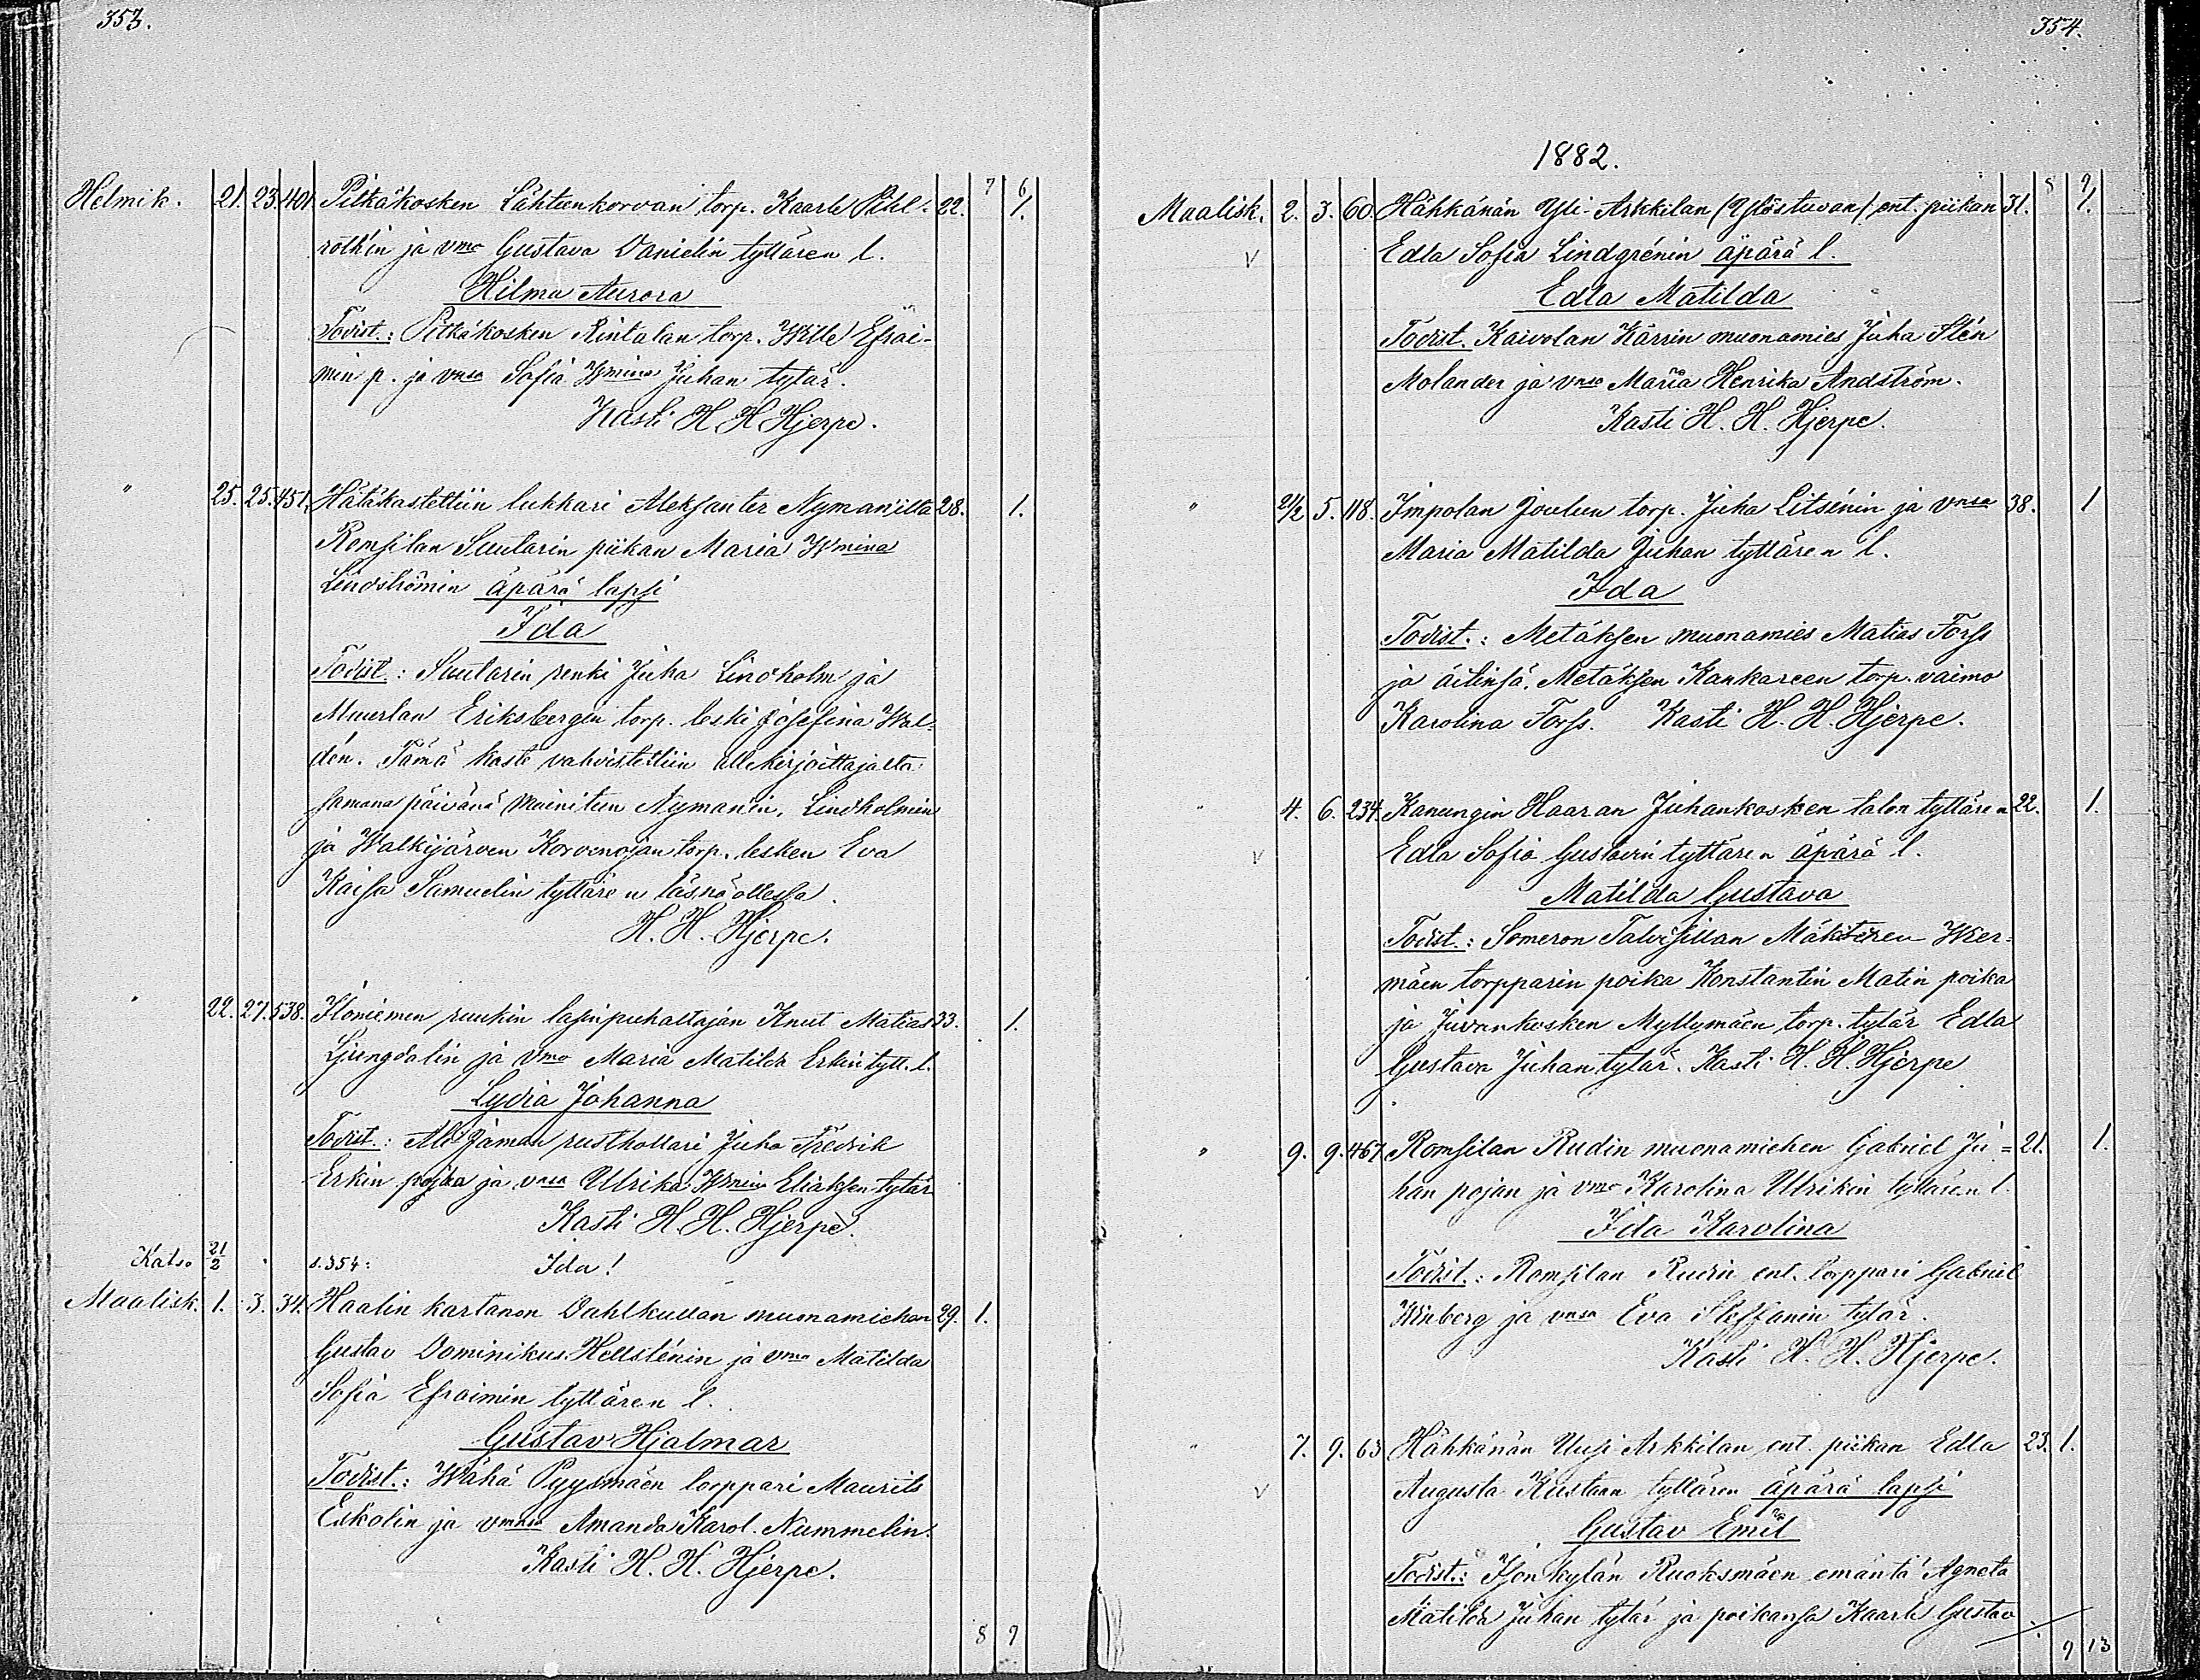 353.
7 6
Helmik. 21. 23. 401. Pitkäkosken Lähteenkorvan torp. Kaarle Pihl- 22. 1.
roth'in ja vmo Gustava Danielin tyttären l.
Hilma Aurora
Todist.: Pitkäkosken Rintalan torp. Wille Efrai-
min p. ja vnsa Sofia Wmina Juhan tytär.
Kasti H. H. Hjerpe.
" 25. 25. 451. Hätäkastettiin lukkari Aleksanter Nyman'ilta 28. 1.
Romsilan Suutarin piikan Maria Wmina
Lindströmin äpärä lapsi
Ida
Todist.: Suutarin renki Juha Lindholm ja
Muurlan Eriksbergin torp. leski Josefina Wal-
dén. Tämä kaste vahvistettiin allekirjoittajalta
samana päivänä mainitun Nyman'in, Lindholmin
ja Walkijärven Korvenojan torp. lesken Eva
Kaisa Samuelin tyttären läsnäollessa.
H. H. Hjerpe.
" 22. 27. 538. Iloniemen ruukin lasinpuhaltajan Knut Matias 33. 1.
Ljungdalin ja vmo Maria Matilda Erkin tytt. l.
Lydia Johanna
Todist.: rusthollari Juha Fredrik
Erkin poika ja vnsa Ulrika Wmina Eliaksen tytär
Kasti H. H. Hjerpe.
Katso 21/2 " s. 354: Ida!
Maalisk. 1. 3. 34. Haalin kartanon Dahlkullan muonamiehen 29. 1.
Gustav Dominikus Hellsténin ja vmo Matilda
Sofia Efraimin tyttären l.
Gustav Hjalmar
Todist.: Wähä Pyysmäen torppari Maurits
Eskolin ja vmnsa Amanda Karol. Nummelin.
Kasti H. H. Hjerpe.
8 9
354.
1882.
8 9
Maalisk. 2. 3. 60. Hähkänän Yli-Arkkilan (Ylöstuvan) ent. piikan 31. 1.
V Edla Sofia Lindgrénin äpärä l.
Edla Matilda
Todist. Kaivolan Kärrin muonamies Juha Stén
Molander ja vnsa Maria Henrika Andström.
Kasti H. H. Hjerpe.
" 21/2 5. 118. Impolan Joulun torp. Juha Litsénin ja vnsa 38. 1
Maria Matilda Juhan tyttären l.
Ida
Todist.: Metäksen muonamies Matias Forss
ja äitinsä, Metäksen Kankareen torp. vaimo
Karolina Forss. Kasti H. H. Hjerpe.
" 4. 6. 234. Kanungin Haaran Juhankosken talon tyttären 22. 1.
V Edla Sofia Gustavin tyttären äpärä l.
Matilda Gustava
Todist.: Someron Talvisillan Wier-
mäen torpparin poika Konstantin Matin poika
ja Juvankosken Myllymäen torp. tytär Edla
Gustava Juhan tytär. Kasti H. H. Hjerpe
" 9. 9. 467. Romsilan Rudin muonamiehen Gabriel Ju- 21. 1.
han pojan ja vmo Karolina Ulrikin tyttären l.
Ida Karolina
Todist.: Romsilan Rudin ent. torppari Gabriel
Winberg ja vnsa Eva Steffanin tytär.
Kasti H. H. Hjerpe.
" 7. 9. 63 Hähkänän Uusi Arkkilan ent. piikan Edla 23. 1.
V Augusta Kustaan tyttären äpärä lapsi
Gustav Emil
Todist.: Ison kylän Ruoksmäen emäntä Agneta
Matilda Juhan tytär ja poikansa Kaarle Gustav
9 13